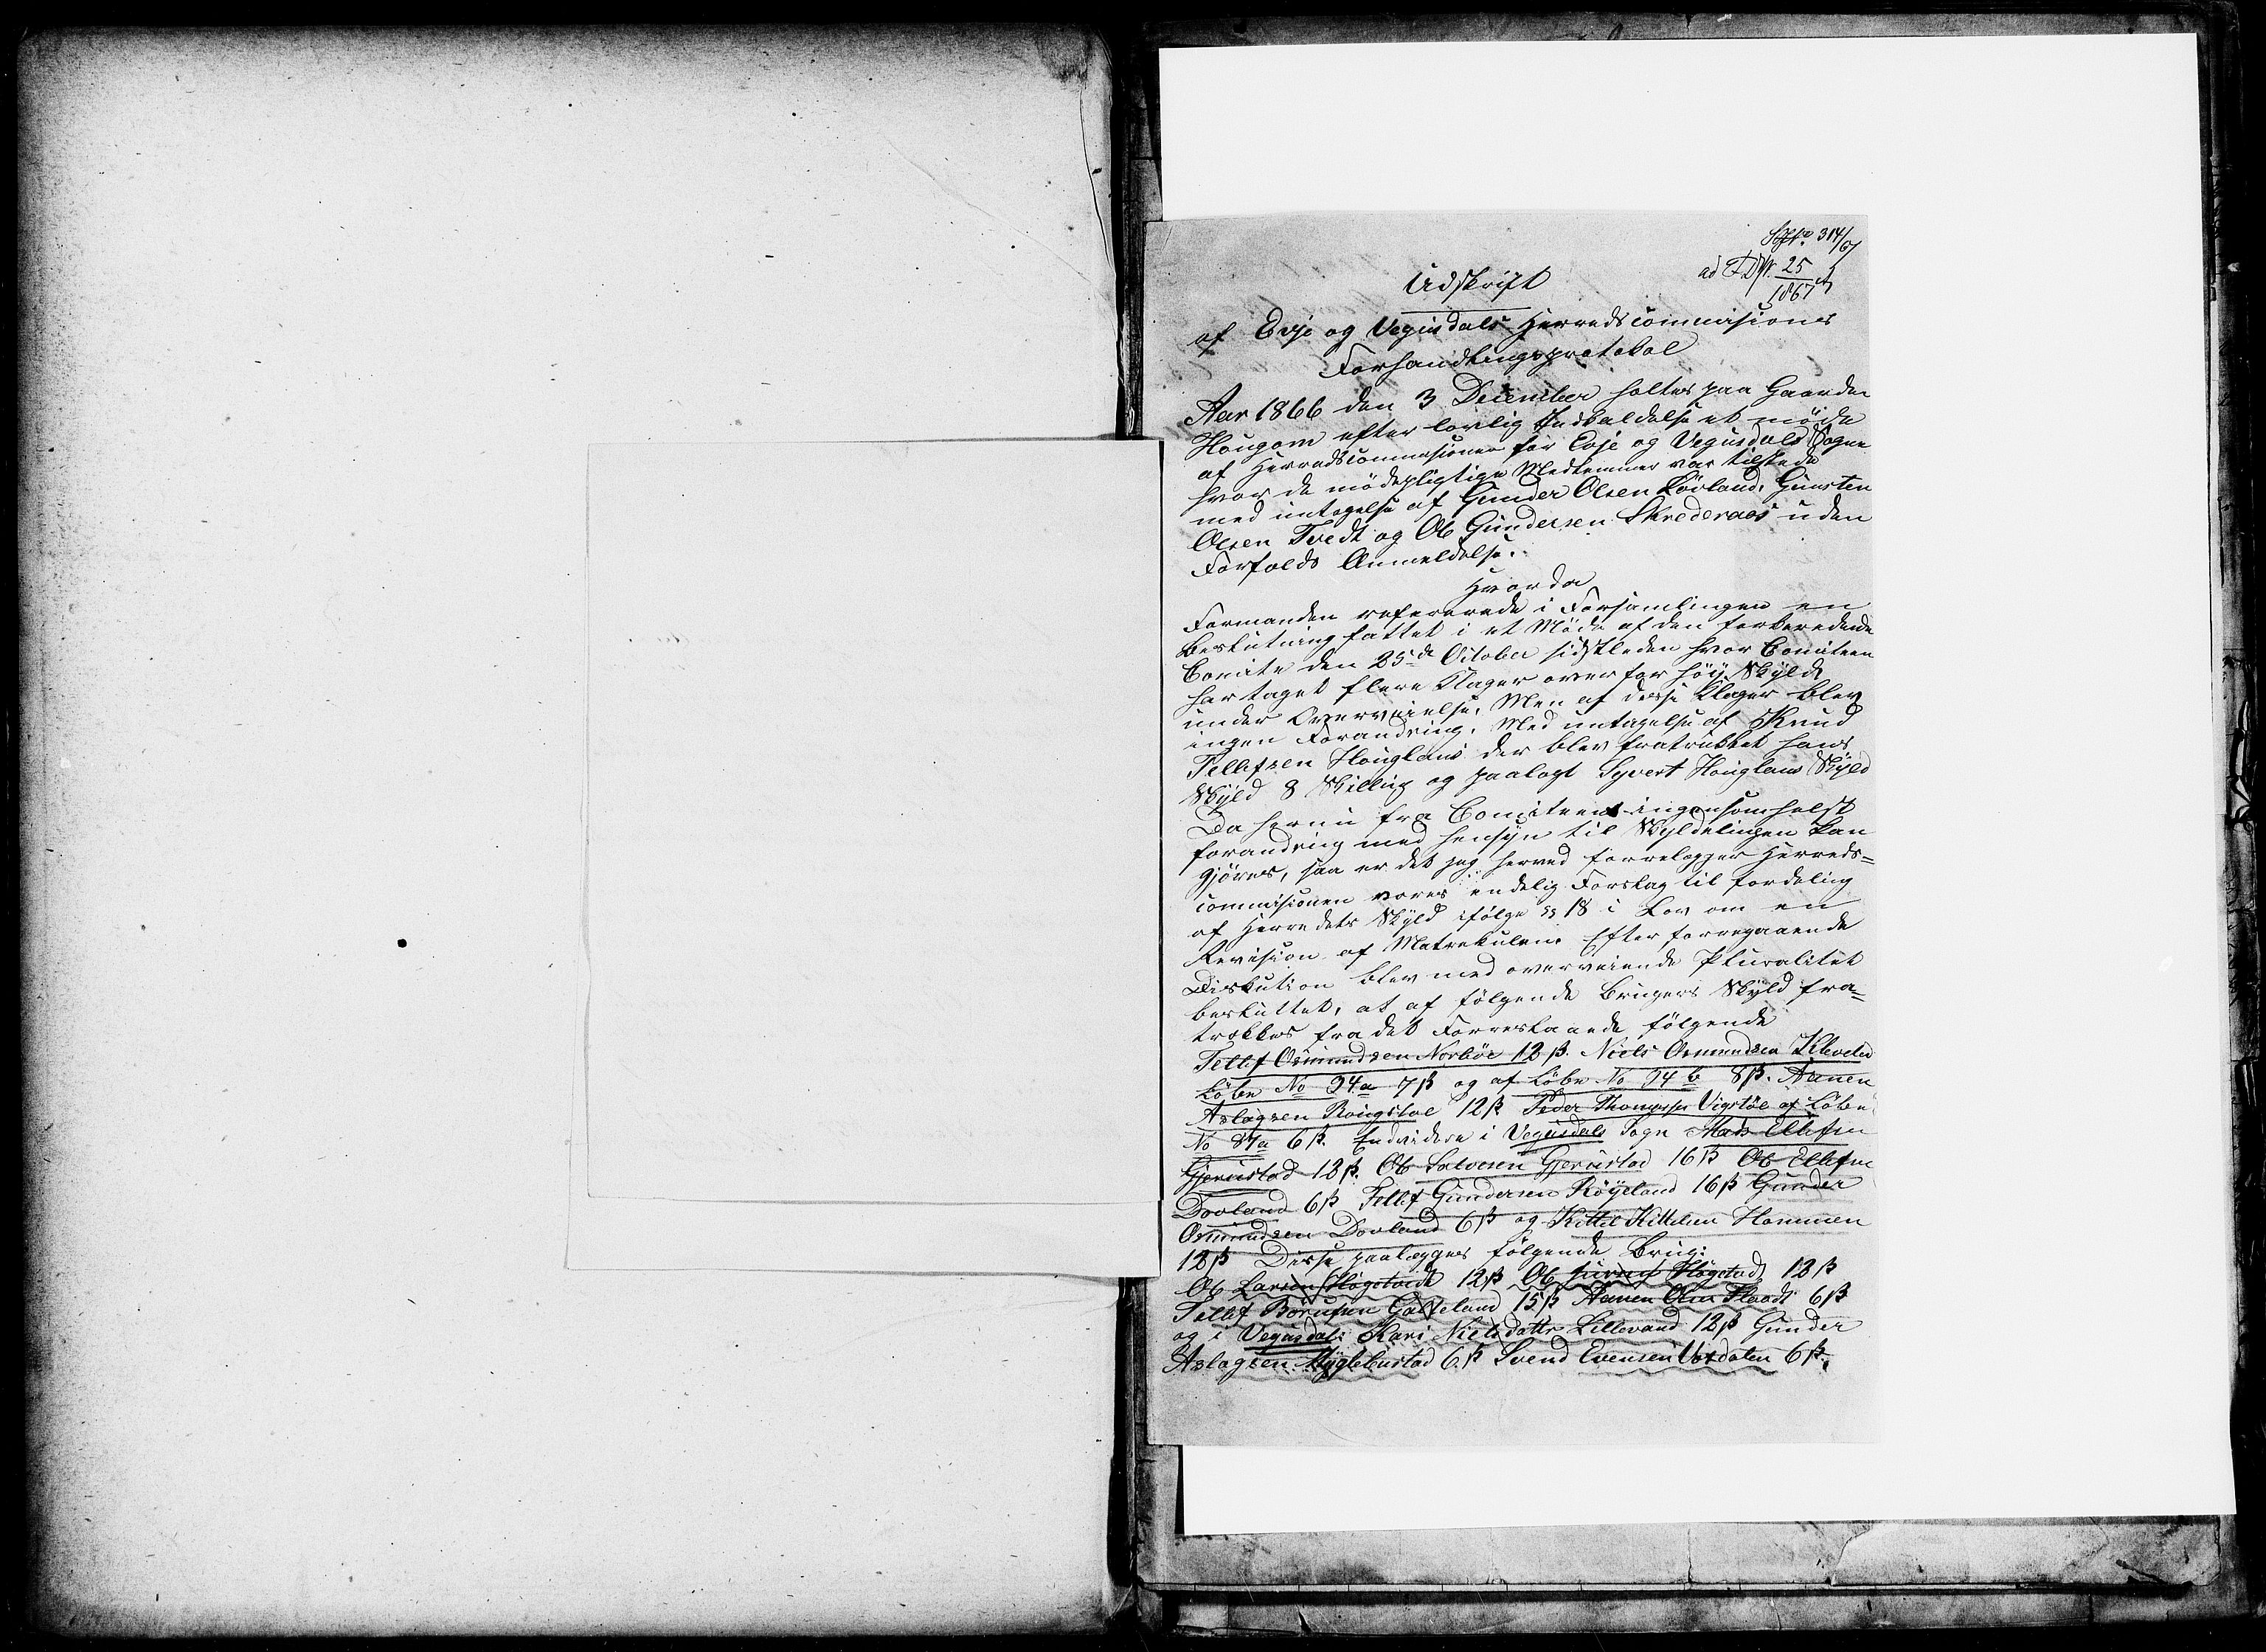 314/67
ad 25
1867
Udskrift
af Evje og Vegusdals Herredscommisiones
Forhandlingsprotokol
Aar 1866 den 3 December holtes paa Gaarden
Hougom efter lovlig Indkaldelse et møde
af Herredscommisionen for Evje og Vegusdals Sogne
hvor de mødepligtige Medlemmer var tilstede
med untagelse af Gunder Olsen Løvland, Gunsten
Olsen Tvedt og Ole Gundersen Skrederaas uden
Forfalds Anmeldelse.
Hvorda
Formanden refererede i Forsamlingen en
Beslutning fattet i et Møde af den forberedende
Comite den 25de October sidstleden hvor Comiteen
har taget flere Klager over for høy Skyld
under Overveielse. Men af disse Klager blev
ingen Forandring. Med untagelse af Knud
Tellefsen Houglans der blev fratrukket hans
Skyld 8 Skilling og paalagt Syvert Houglans Skyld
Da her nu fra Comiteen ingensomhelst
forandring med hensyn til Skyldelingen kan
gjøres, saa er det jeg herved forrelegger Herreds=
commisionen vores endelig Forslag til fordeling
af Herredets Skyld ifølge §§ 18 i Lov om en
Revision af Matrekulen. Efter forregaaende
Diskution blev med overveiende Pluralitet
besluttet, at af følgende Brugers Skyld fra=
trækkes fra det Forrestaaende følgende
Tellef Osmundsen Norbøe 12 ß. Niels Osmundsen Kleveland
Løbe No 94a 7 ß og af Løbe No 94 b 8 ß. Aanen
Aslagsen Rougstøl 12 ß Peder Thomassen Vigstøl af Løbe
No 87a 6 ß. Endvidere i Vegusdals Sogn Mads Ellefsen
Gjerustad 12 ß. Ole Salvesen Gjerustad 16 ß Ole Ellefsen
Dovland 6 ß Tellef Gundersen Røyeland 16 ß Gunder
Osmundsen Dovland 6 ß og Kittel Kittelsen Hommen
12 ß Disse paalægges følgende Brug:
Ole Larsen Høgetveidt 12 ß Ole Høgetvedt 12 ß
Tellef Børufsen Gauteland 15 ß Aanen Olsen Flaadt 6 ß
og i Vegusdal: Kari Nielsdatter Lillevand 12 ß Gunder
Aslagsen Myglebustad 6 ß Svend Evensen Vatdalen 6 ß.